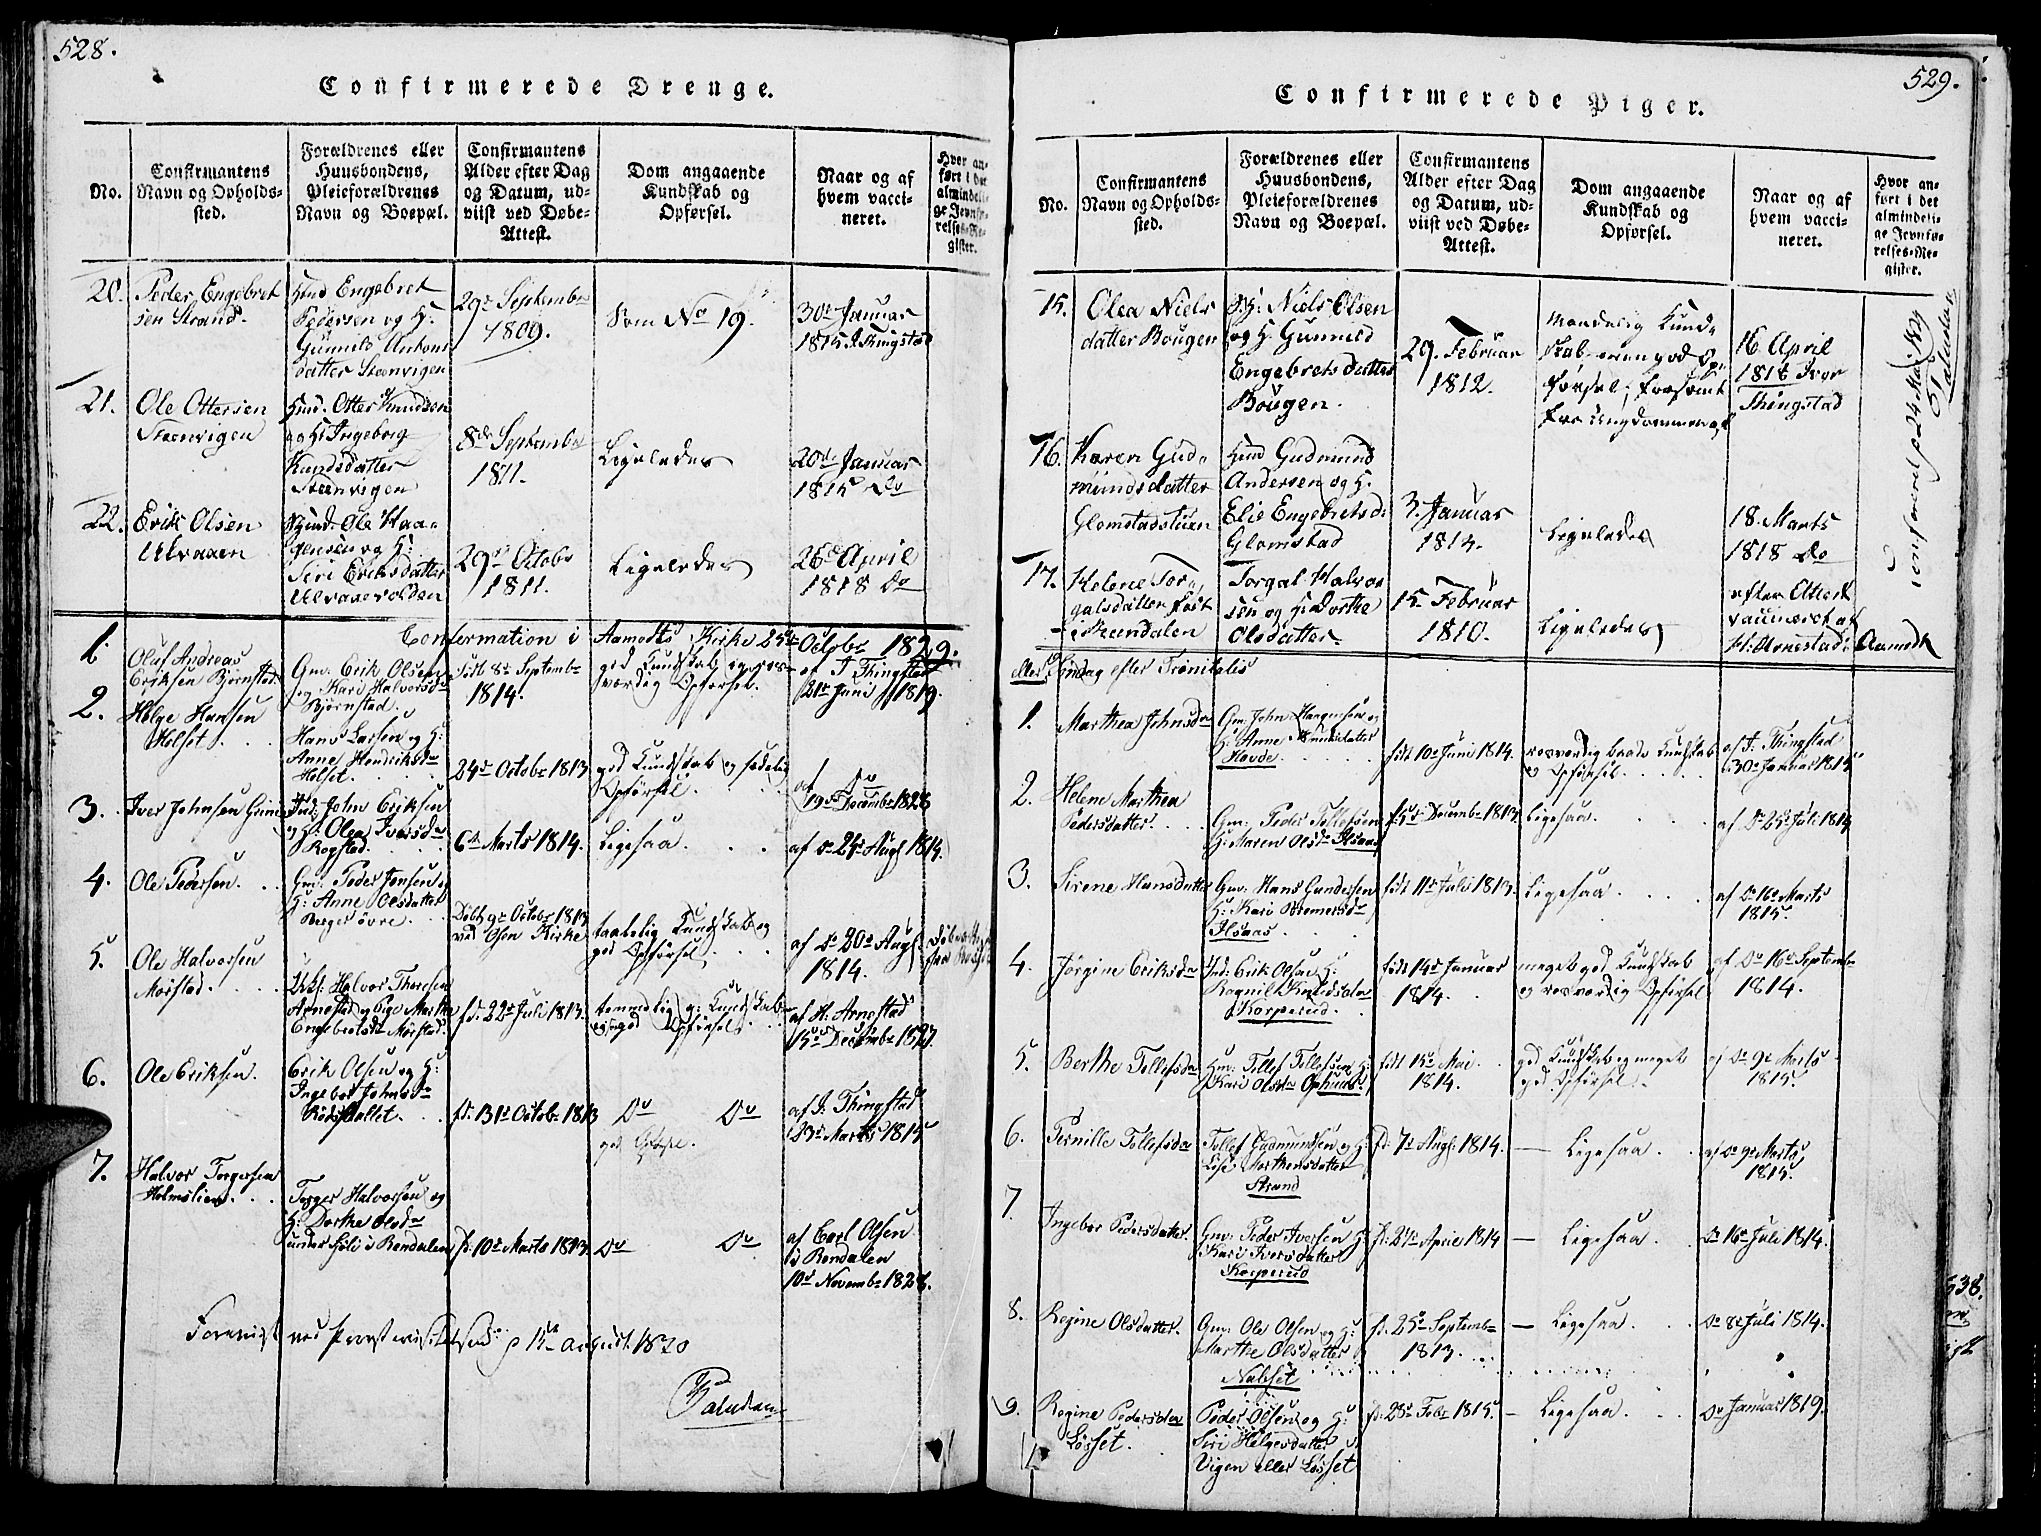 528.
Confirmerede Drenge.
No.
Confirmantens
Navn og Opholds-
sted.
Forældrenes eller
Huusbondens,
Pleieforældrenes
Navn og Boepæl.
Confirmantens
Alder efter Dag
og Datum, ud-
viist ved Døbe-
Attest.
Dom angaaende
Kundskab og
Opførsel.
Naar og af
hvem vacci-
neret.
Hvor an-
ført i det
almindeli-
ge Jevnfø-
relses-Re-
gister.
20.
Peder Engebret
sen Strand.
Huusmd Engebret
Pedersen og H:
Gunnild Antons
datter Steenvigen
29de September
1809.
Som No 19.
30te Januar
1815 J. Thingstad
21.
Ole Ottersen
Steenvigen
Huusmd. Otter Knudsen
og H: Ingeborg
Knudsdatter
Steenvigen
8de September
1811.
Ligeledes
20de Januar
1815 Do
22.
Erik Olsen
Ulvaaen
Huusmd. Ole Haa-
gensen og H:
Siri Eriksdatter
Ulvaaevolden
29de Octobr
1811.
Ligeledes
26de April
1818 Do
Confermation i Aamodts Kirke 25de Octobr 1829.
1.
Oluf Andreas
Eriksen Bjørnstad
Gm. Erik Olsen
og Kari Halvorsdr
Bjørnstad.
født 8de Septembr
1814.
god Kundskab og ros-
værdig Opførsel.
af J Thingstad
21de Juni 1819.
2.
Helge Hansen
Helset . . .
Hans Larsen og H:
Anne Hendriksdr
Helset. . . .
24de Octobr 1813
god Kundskab og sædelig
Opførsel. . . .
af Do
19de Decembr 1828
3.
Iver Johnsen
Ind: John Eriksen
og H: Olea Iversdr
Rogstad.
6te Marts 1814.
Ligesaa. . .
af Do 24de Augs 1814.
4.
Ole Pedersen. . .
Gm: Peder Jensen og
H: Anne Olsdatter
Berger øvre. . .
Døbt 9de Octobr 1813
ved Osen Kirke
taabelig Kundskab og
god Opførsel. . .
af Do 20de Augs
1814.
5.
Ole Halvorsen
Mørstad. . . .
Halvor Thoresen
Arnestad og Pige Marthe
Engebretsdr Mørstad.
fd: 22de Juli 1813.
temmelig g: Kundskab
og god Opførsel . .
af H: Arnestad
15de Decembr 1827.
6.
Ole Eriksen.
Erik Olsen og H:
Ingebor Johnsdr
Rødsdallet. . .
fd: 31te Octobr 1813
Do Do
af J: Thingstad
23de Marts 1815
7.
Halvor Torgersen
Holmslien. . .
Torger Halvorsen og
H: Dorthe Olsdr
under Søli i Rendalen
fd: 10de Marts 1813.
Do Do
af Carl Olsen
i Rendalen
10de Novembr 1828.
Foreviist ved Provstevisitatsen d: 15de August 1830
Paludan
529.
Confirmerede Piger.
No.
Confirmantens
Navn og Opholds-
sted.
Forældrenes eller
Huusbondens,
Pleieforældrenes
Navn og Boepæl.
Confirmantens
Alder efter Dag
og Datum, ud-
viist ved Døbe-
Attest.
Dom angaaende
Kundskab og
Opførsel.
Naar og af
hvem vacci-
neret.
Hvor an-
ført i det
almindeli-
ge Jevnfø-
relses-Re-
gister.
15.
Olea Niels
datter Bougen
Niels Olsen
og H: Gunnild
Engebretsdatter
Bougen.
29. Februar
1812.
Maadelig Kund-
skab men god Op-
førsel; forsømt
fra Ungdommen af
16 April
1818 Iver
Thingstad
16.
Karen Gud-
mundsdatter
Glomstadstuen
Huusmd Gudmund
Andersen og H:
Elie Engebretsd:
Glomstad
3. Januar
1814.
Ligeledes
18. Marts
1818 Do
17.
Helene Tor-
galsdatter født
i Reendalen
Torgal Halvor
sen og H: Dorthe
Olsdatter
15. Februar
1810.
Ligeledes
efter Attest
vaccineret af
H: Arnestad i Aamodt
Confereret p 24 Mai 1829
Paludan
eller 19 Søndag efter Trinitatis
1.
Marthea Johnsdr
Gm. John Haagensen og
H: Anne Amundsdatter
Hovde. . . . .
født 10de Juni 1814.
rosværdig baade Kundskab
og Opførsel. . . . .
af J. Thingstad
30te Januar 1815
2.
Helene Marthea
Pedersdatter. . . .
Gm: Peder Tollefsen
H: Maren Olsdr Ilsaas
fd: 5te Decembr 1813
Ligesaa. . . .
af Do 25de Juli 1814
3.
Sirene Hansdatter
Gm: Hans Gundersen
H: Kari Bremersdr
Ilsaas . .
født 11te Juli 1813.
Ligesaa. . . .
af Do 16de Marts
1815.
4.
Jørgine Eriksdr
Ind: Erik Olsen H:
Ragnil Knudsdr
Korperud. .
født 14de Januar
1814.
meget god Kundskab
og rosværdig Opførsel
af Do 16de Septembr
1814.
5.
Berthe Tollefsdr
Gm: Tollef Tollefsen H:
Kari Olsdr Ophuus
født 15de Mai.
1814.
god Kundskab og meget
god Opførsel.
af Do 9de Marts
1815.
6.
Pernille Tollefsdr
Tollef Gudmundsen og H:
Lise Marthensdatter
Strand
fd: 7de Augs: 1814.
— Ligesaa. .
af Do 9de Marts
1815.
7.
Ingebor Pedersdatter.
Gm: Peder Iversen H:
Kari Iversdatter
Korperud
fd: 27de April 1814
— Ligesaa. .
Do 16de Juli 1814.
8.
Regine Olsdatter.
Gm: Ole Olsen og H:
Marthe Olsdatter
Nabset
fd: 25de Septembr
1813. . .
— Ligesaa. . .
Do 8de Juli 1814.
9.
Regine Pedersdr
Løsset.
Peder Olsen og H:
Siri Helgesdatter
Vigen eller Løsset
fd: 28de Febr 1815.
— Ligesaa. . .
Do Januar 1819.
538.